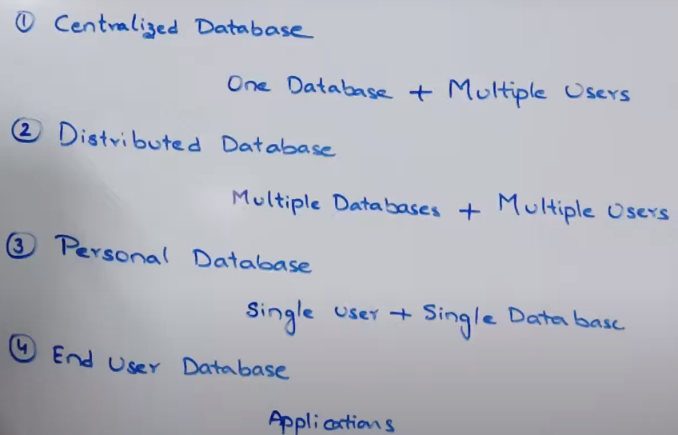 ① Centralized Database
One Database + Multiple Users
② Distributed Database
Multiple Databases + Multiple Users
③ Personal Database
Single user + Single Database
④ End User Database
Applications